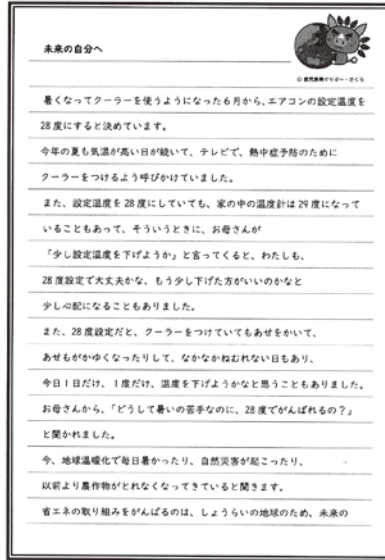 未来の自分へ
© 鹿児島県ぐりぶー・さくら
暑くなってクーラーを使うようになった6月から、エアコンの設定温度を
28度にすると決めています。
今年の夏も気温が高い日が続いて、テレビで、熱中症予防のために
クーラーをつけるよう呼びかけていました。
また、設定温度を28度にしていても、家の中の温度計は29度になって
いることもあって、そういうときに、お母さんが
「少し設定温度を下げようか」と言ってくると、わたしも、
28度設定で大丈夫かな、もう少し下げた方がいいのかなと
少し心配になることもありました。
また、28度設定だと、クーラーをつけていてもあせをかいて、
あせもがかゆくなったりして、なかなかねむれない日もあり、
今日1日だけ、1度だけ、温度を下げようかなと思うこともありました。
お母さんから、「どうして暑いの苦手なのに、28度でがんばれるの?」
と聞かれました。
今、地球温暖化で毎日暑かったり、自然災害が起こったり、
以前より農作物がとれなくなってきていると聞きます。
省エネの取り組みをがんばるのは、しょうらいの地球のため、未来の